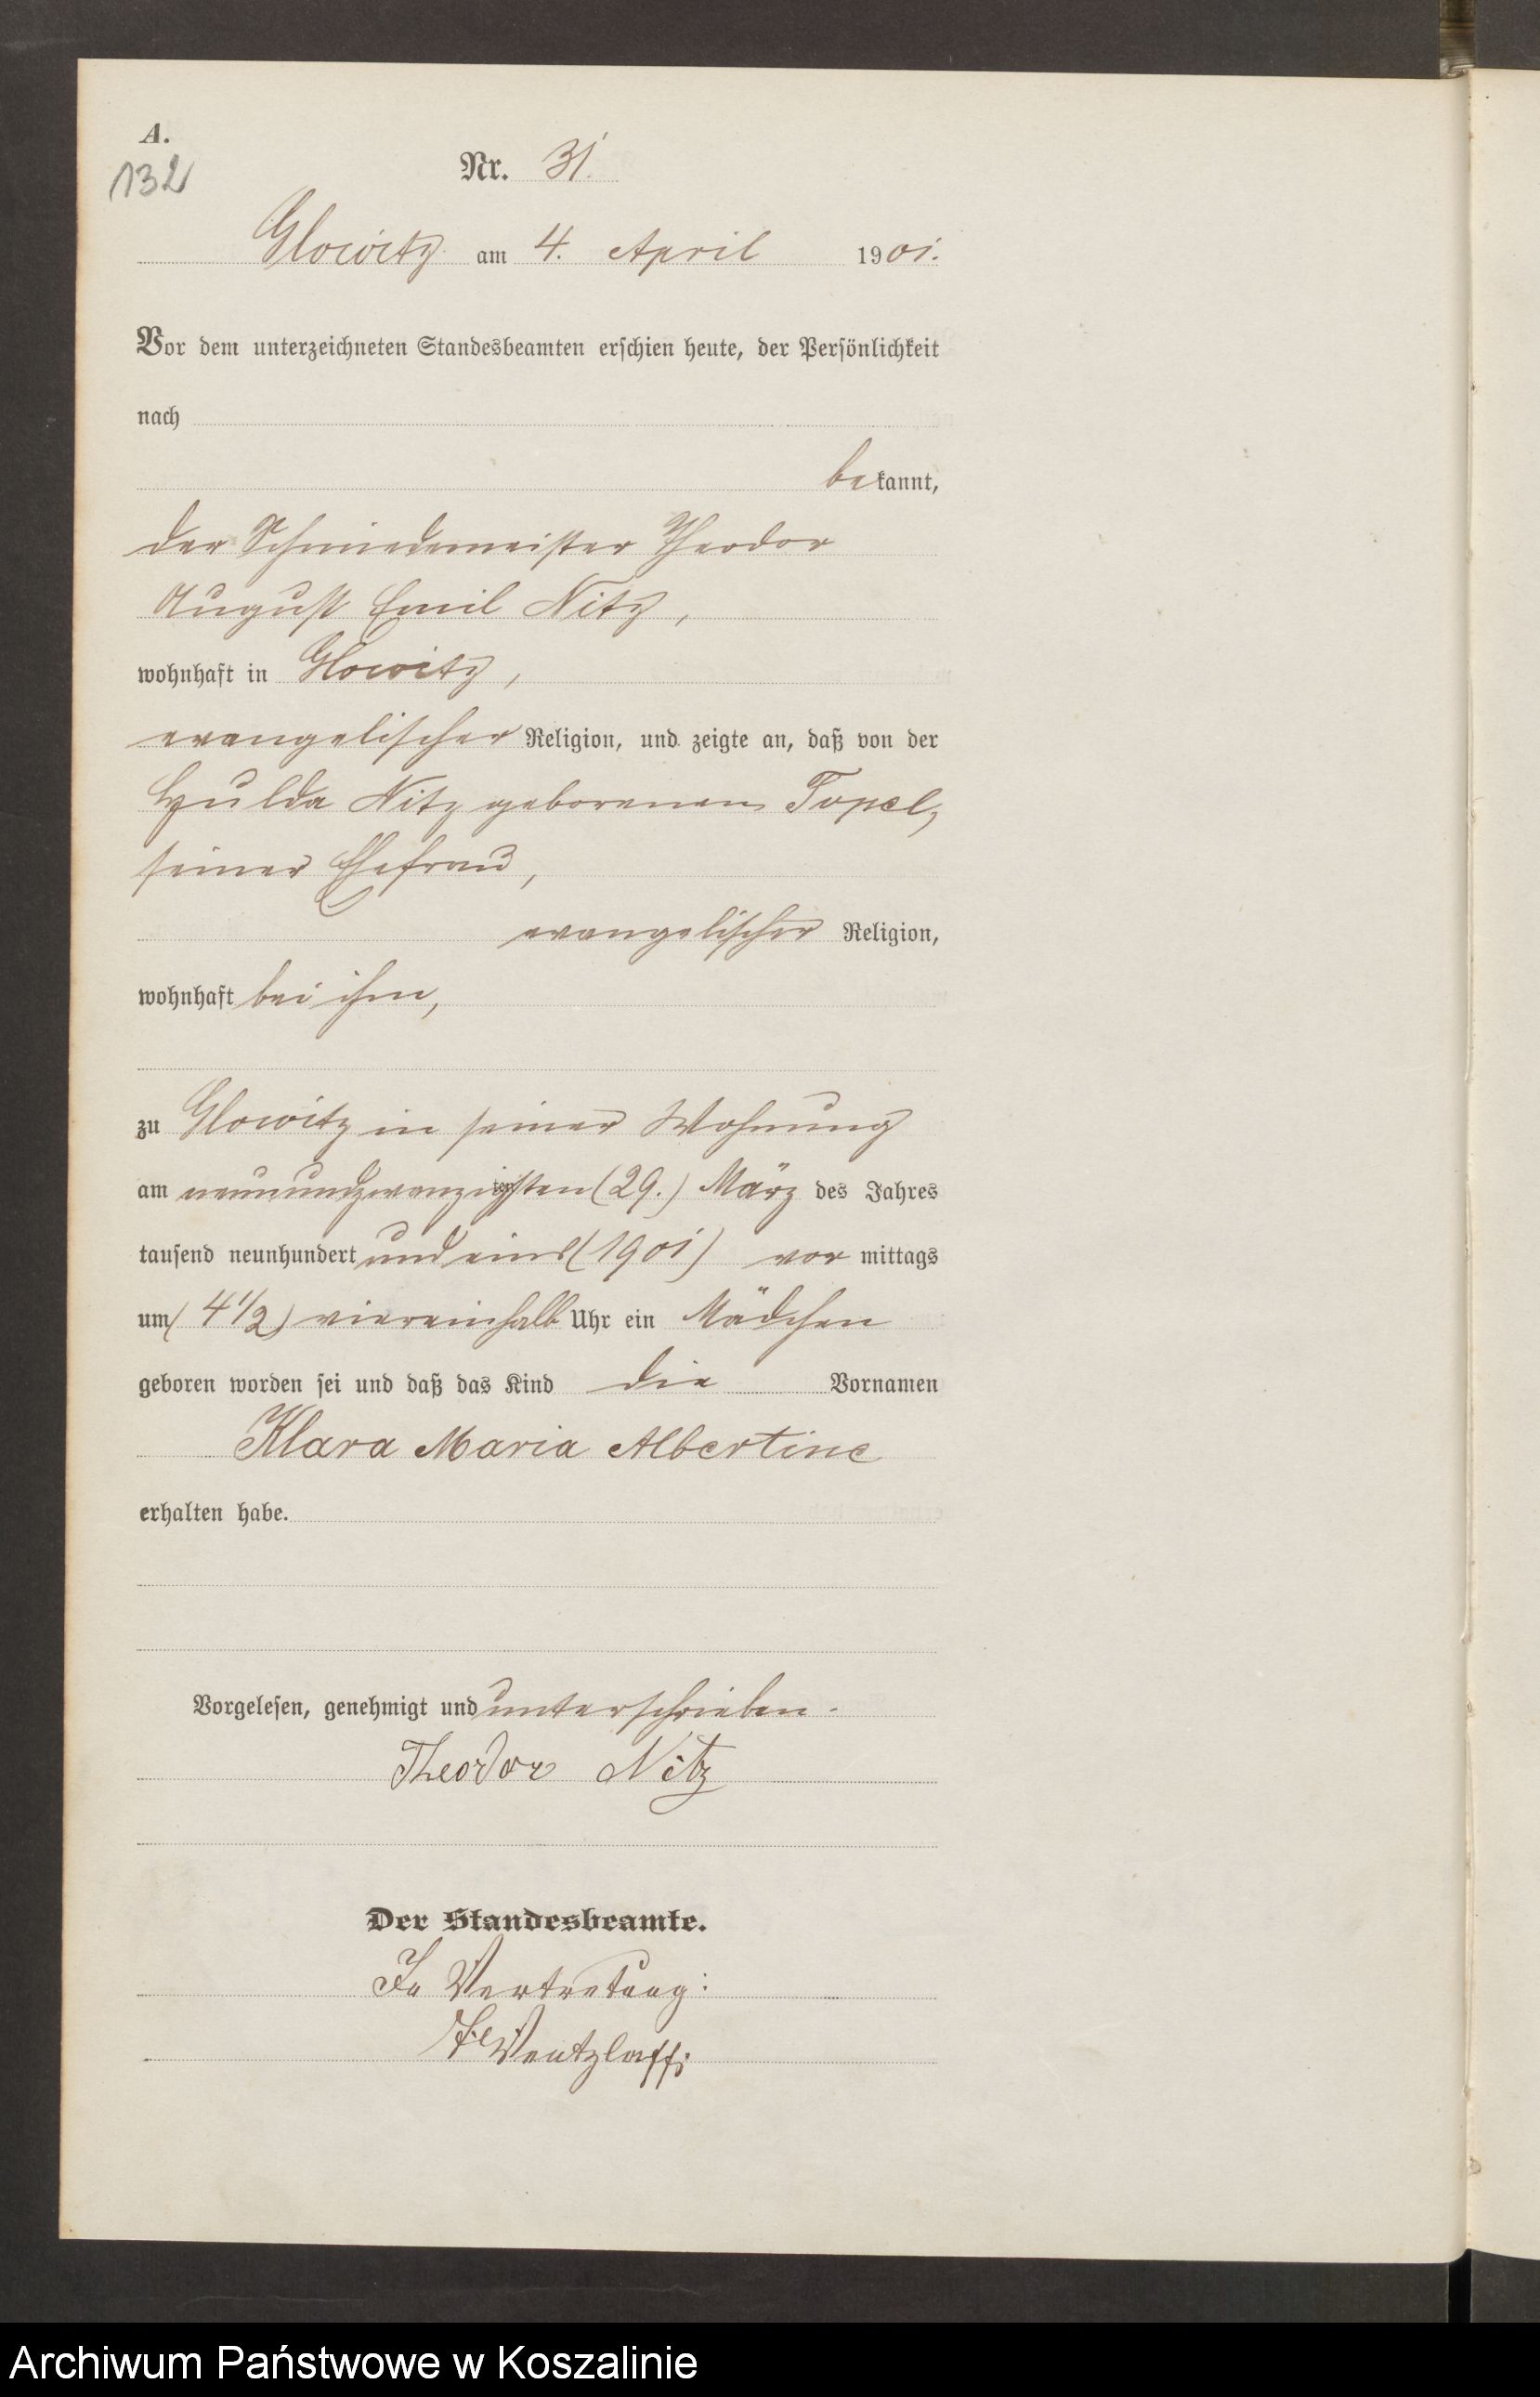 A.
132
Nr. 31.
Glowitz am 4. April 1901.
Vor dem unterzeichneten Standesbeamten erschien heute, der Persönlichkeit
nach
bekannt,
der Schmiedemeister Theodor
August Emil Nitz,
wohnhaft in Glowitz,
evangelischer Religion, und zeigte an, daß von der
Hulda Nitz geborenen Topel,
seiner Ehefrau,
evangelischer Religion,
wohnhaft bei ihm,
zu Glowitz in seiner Wohnung
am neunundzwanzigsten (29.) März des Jahres
tausend neunhundert und eins (1901) vor mittags
um (4 1/2) viereinhalb Uhr ein Mädchen
geboren worden sei und daß das Kind die Vornamen
Klara Maria Albertine
erhalten habe.
Vorgelesen, genehmigt und unterschrieben.
Theodor Nitz
Der Standesbeamte.
In Vertretung:
Wentzlaff
Archiwum Państwowe w Koszalinie